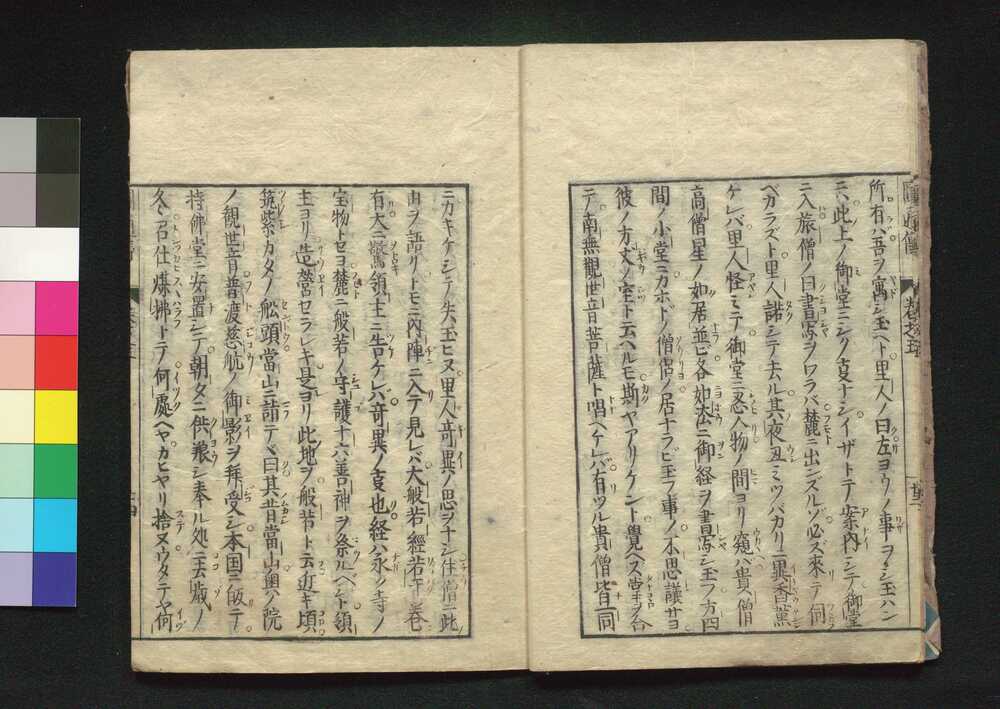 所有バ吾ヲ寓シ玉ヘト里人ノ曰左ヨウノ事ヲシ玉ハン
ニハ此上ノ御堂ニシク叓ナシイザトテ案内シテ御堂
ニ入旅僧ノ曰書写ヲワラバ麓ニ出ンズルゾ必ズ來テ伺
ベカラズト里人諾シテ去ル其夜丑ミツバカリニ異香薫
ケレバ里人怪ミテ御堂ニ忍ヒ物ノ間ヨリ窺ハ貴僧
高僧星ノ如居並ビ各如法ニ御経ヲ書写シ玉フ方四
間ノ小堂ニカホドノ僧侶ノ居ナラビ玉フ事ノ不思議サヨ
彼ノ方丈ノ室ト云ヘルモ斯ヤアリケント覺ヘス掌ヲ合
テ南無觀世音菩薩ト唱ヘケレバ有ツル貴僧皆一同
ニカキケシテ失玉ヒヌ里人奇異ノ思ヲナシ住僧ニ此
由ヲ語リトモニ内陣ニ入テ見レバ大般若經若干巻
有大ニ驚領主ニ告ケレバ奇異ノ叓也経ハ永ノ寺ノ
宝物トセヨ麓ニ般若ノ守護十六善神ヲ祭ルベシト領
主ヨリ造營セラレキ是ヨリ此地ヲ般若ト云近キ頃
筑紫カタノ舩頭當山ニ詣テヽ曰其昔當山奥ノ院
ノ観世音普渡慈航ノ御影ヲ拜受シ本国ニ皈テ
持佛堂ニ安置シテ朝タニ供養シ奉ル処ニ去歳ノ
冬召仕煤拂トテ何處ヘヤカヒヤリ捨ヌウタテヤ何